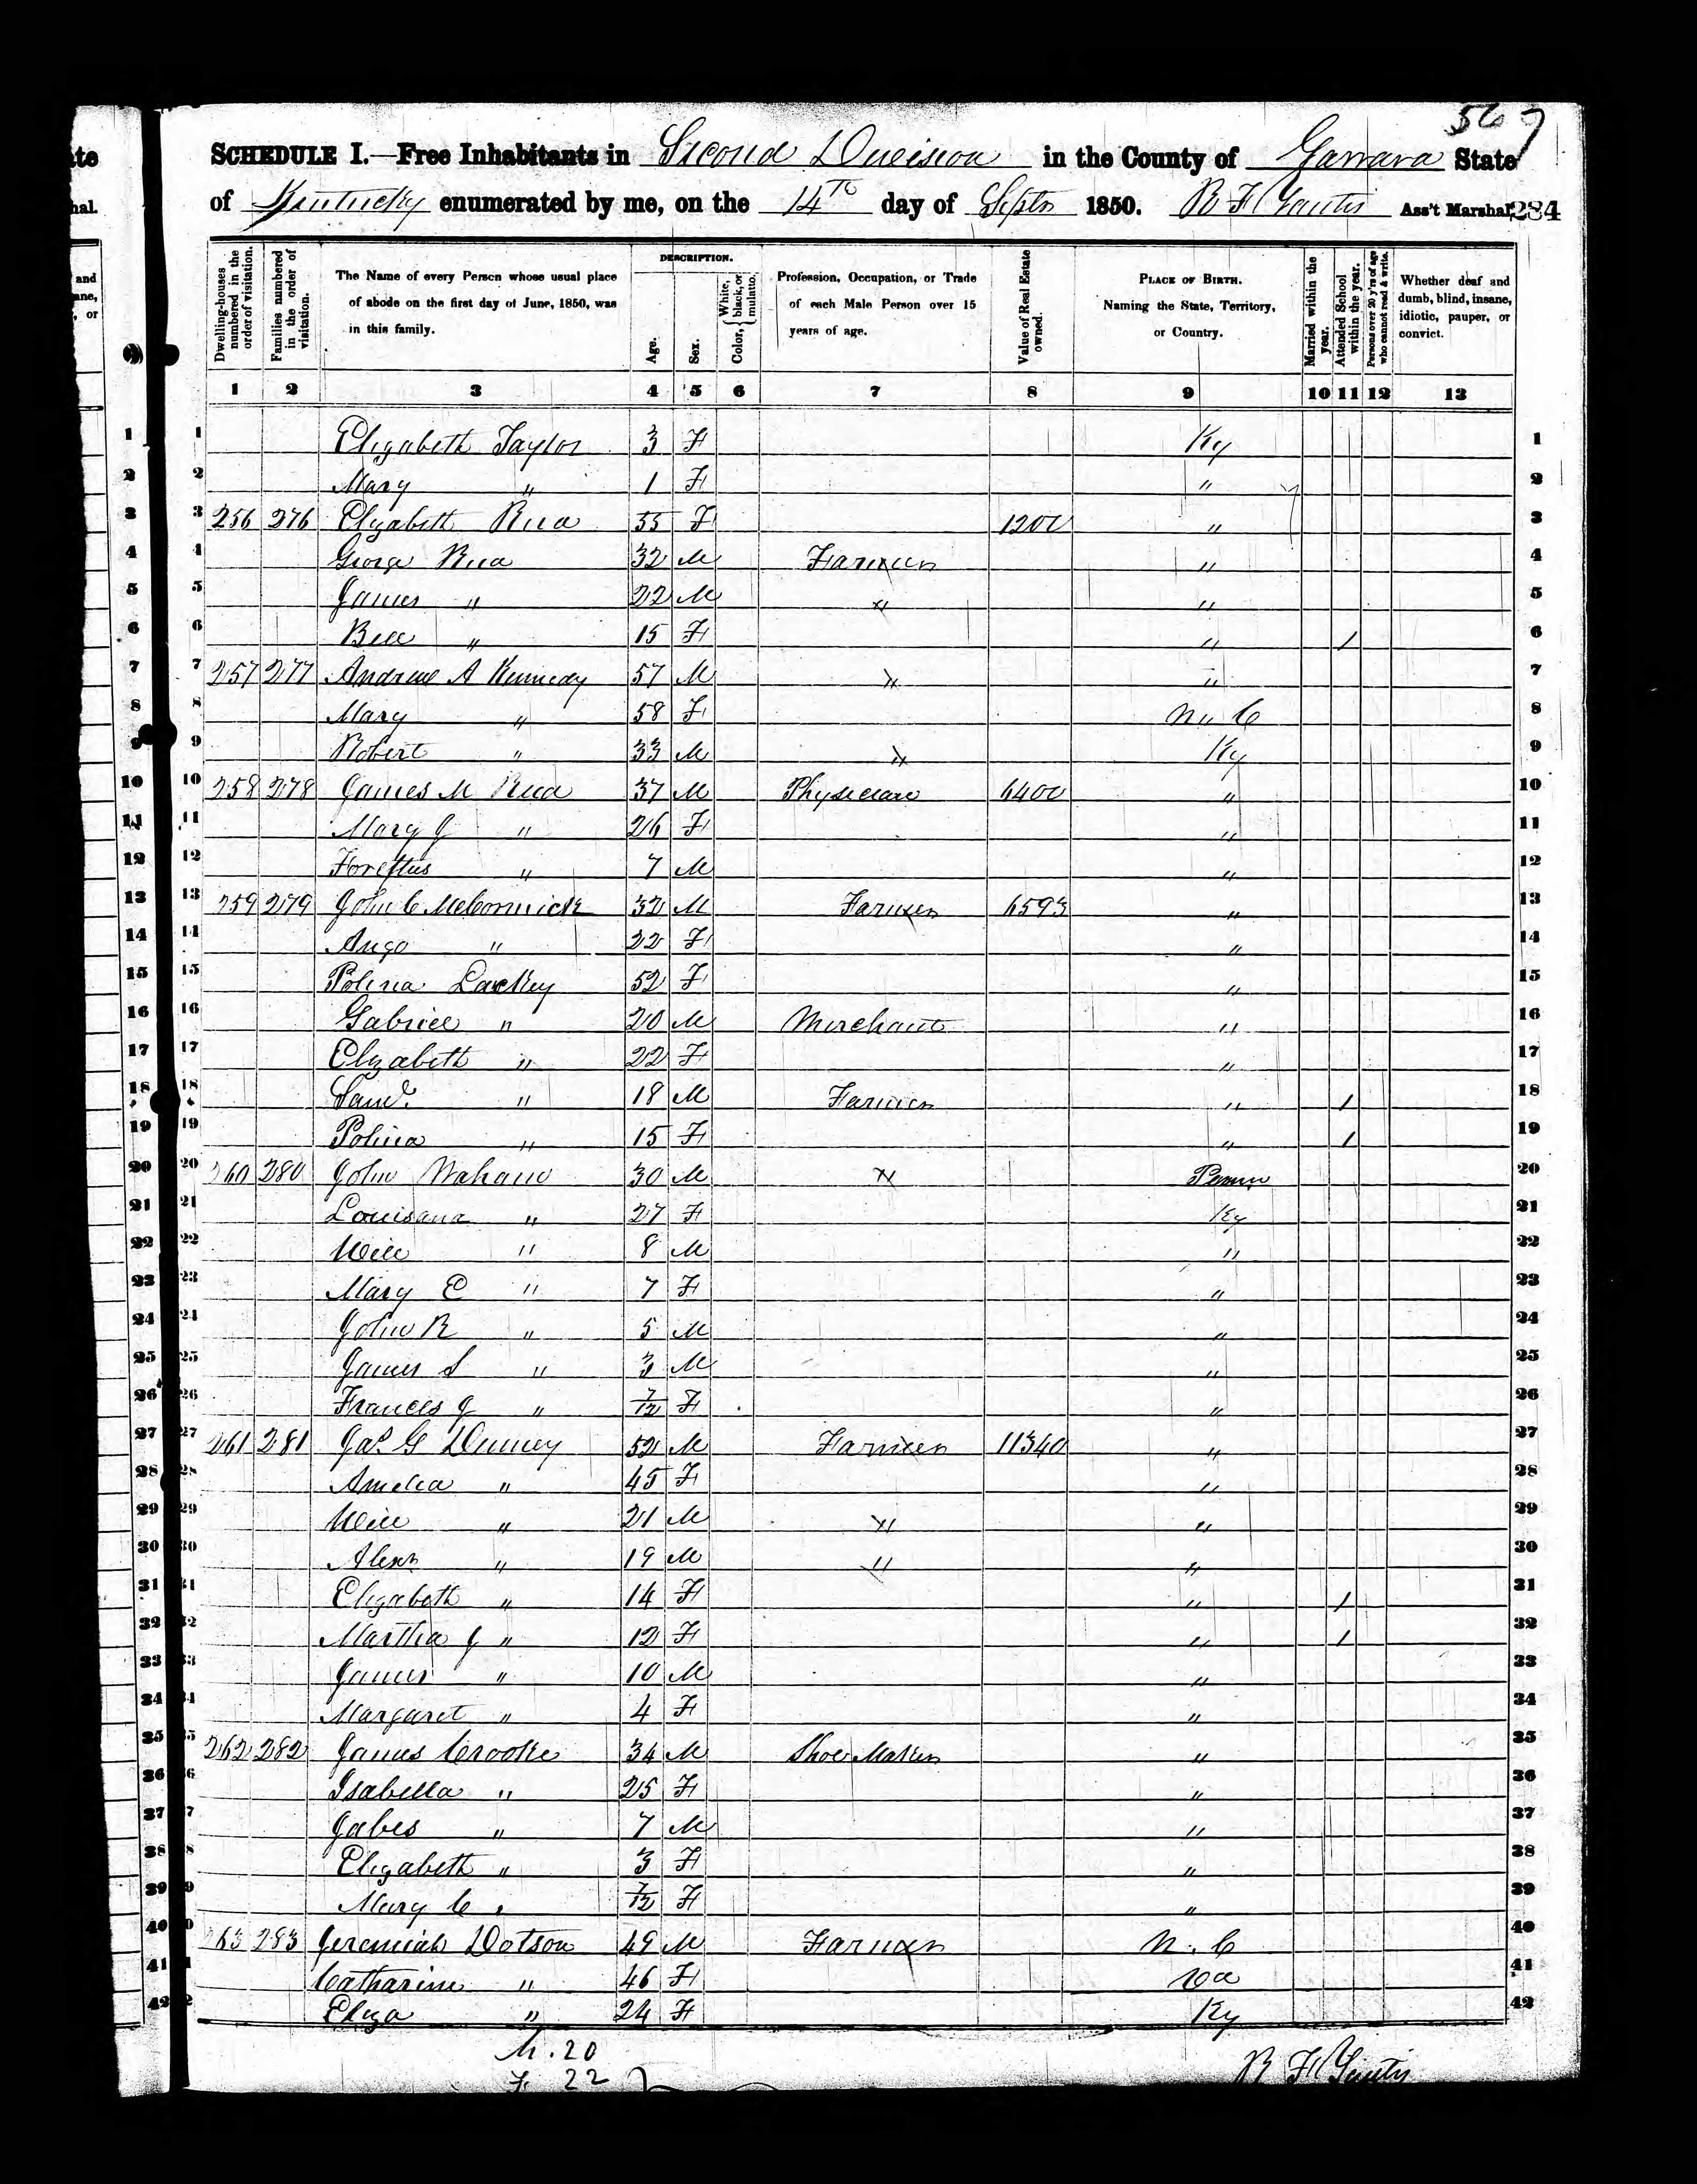 567
SCHEDULE I.—Free Inhabitants in Second Division in the County of Garrard State
of Kentucky enumerated by me, on the 14th day of Septr 1850. B F Ass't Marshal. 284
Dwelling-houses numbered in the order of visitation.
Families numbered in the order of visitation.
The Name of every Person whose usual place of abode on the first day of June, 1850, was in this family.
DESCRIPTION.
Age.
Sex.
Color, White, black, or mulatto.
Profession, Occupation, or Trade of each Male Person over 15 years of age.
Value of Real Estate owned.
PLACE OF BIRTH. Naming the State, Territory, or Country.
Married within the year.
Attended School within the year.
Persons over 20 y'rs of age who cannot read & write.
Whether deaf and dumb, blind, insane, idiotic, pauper, or convict.
1 2 3 4 5 6 7 8 9 10 11 12 13
1 Elizabeth Taylor 3 F Ky 1
2 Mary " 1 F " 2
3 256 276 Elizabeth 55 F 1200 " 3
4 George 32 M Farmer " 4
5 James " 22 M " " 5
6 " 15 F " / 6
7 257 277 Andrew A Kennedy 57 M " " 7
8 Mary " 58 F N. C 8
9 Robert " 33 M " Ky 9
10 258 278 James M 37 M Physician 6400 " 10
11 Mary J " 26 F " 11
12 " 7 M " 12
13 259 279 John C McCormick 32 M Farmer 6593 " 13
14 " 22 F " 14
15 Polina Lackey 52 F " 15
16 Gabriel " 20 M Merchant " 16
17 Elizabeth " 22 F " 17
18 Saml. " 18 M Farmer " / 18
19 Polina " 15 F " / 19
20 260 280 John 30 M " Penn 20
21 Louisana " 27 F Ky 21
22 Will " 8 M " 22
23 Mary E " 7 F " 23
24 John R " 5 M " 24
25 James S " 3 M " 25
26 Frances J " 7/12 F " 26
27 261 281 Jas G 52 M Farmer 11340 " 27
28 Amelia " 45 F " 28
29 Will " 21 M " " 29
30 Alexr " 19 M " " 30
31 Elizabeth " 14 F " / 31
32 Martha J " 12 F " / 32
33 James " 10 M " 33
34 Margaret " 4 F " 34
35 262 282 James Crooke 34 M Shoe Maker " 35
36 Isabella " 25 F " 36
37 Jabes " 7 M " 37
38 Elizabeth " 3 F " 38
39 Mary C " 7/12 F " 39
40 263 283 Jeremiah Dotson 49 M Farmer N. C 40
41 Catharine " 46 F Va 41
42 Eliza " 24 F Ky 42
M. 20
F. 22
B F